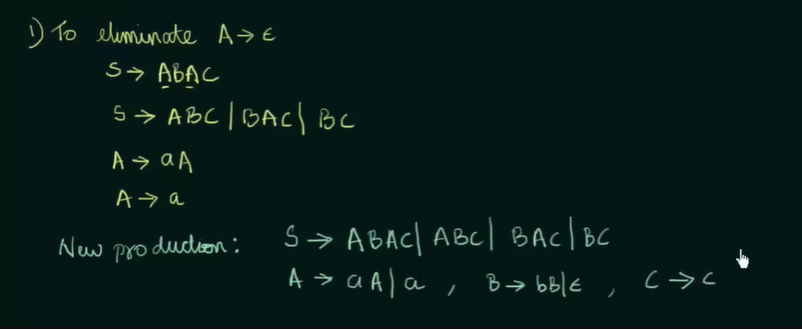 1) To eliminate A → ε
S → ABAC
S → ABC | BAC | BC
A → aA
A → a
New production: S → ABAC | ABC | BAC | BC
A → aA | a , B → bB | ε , C → c